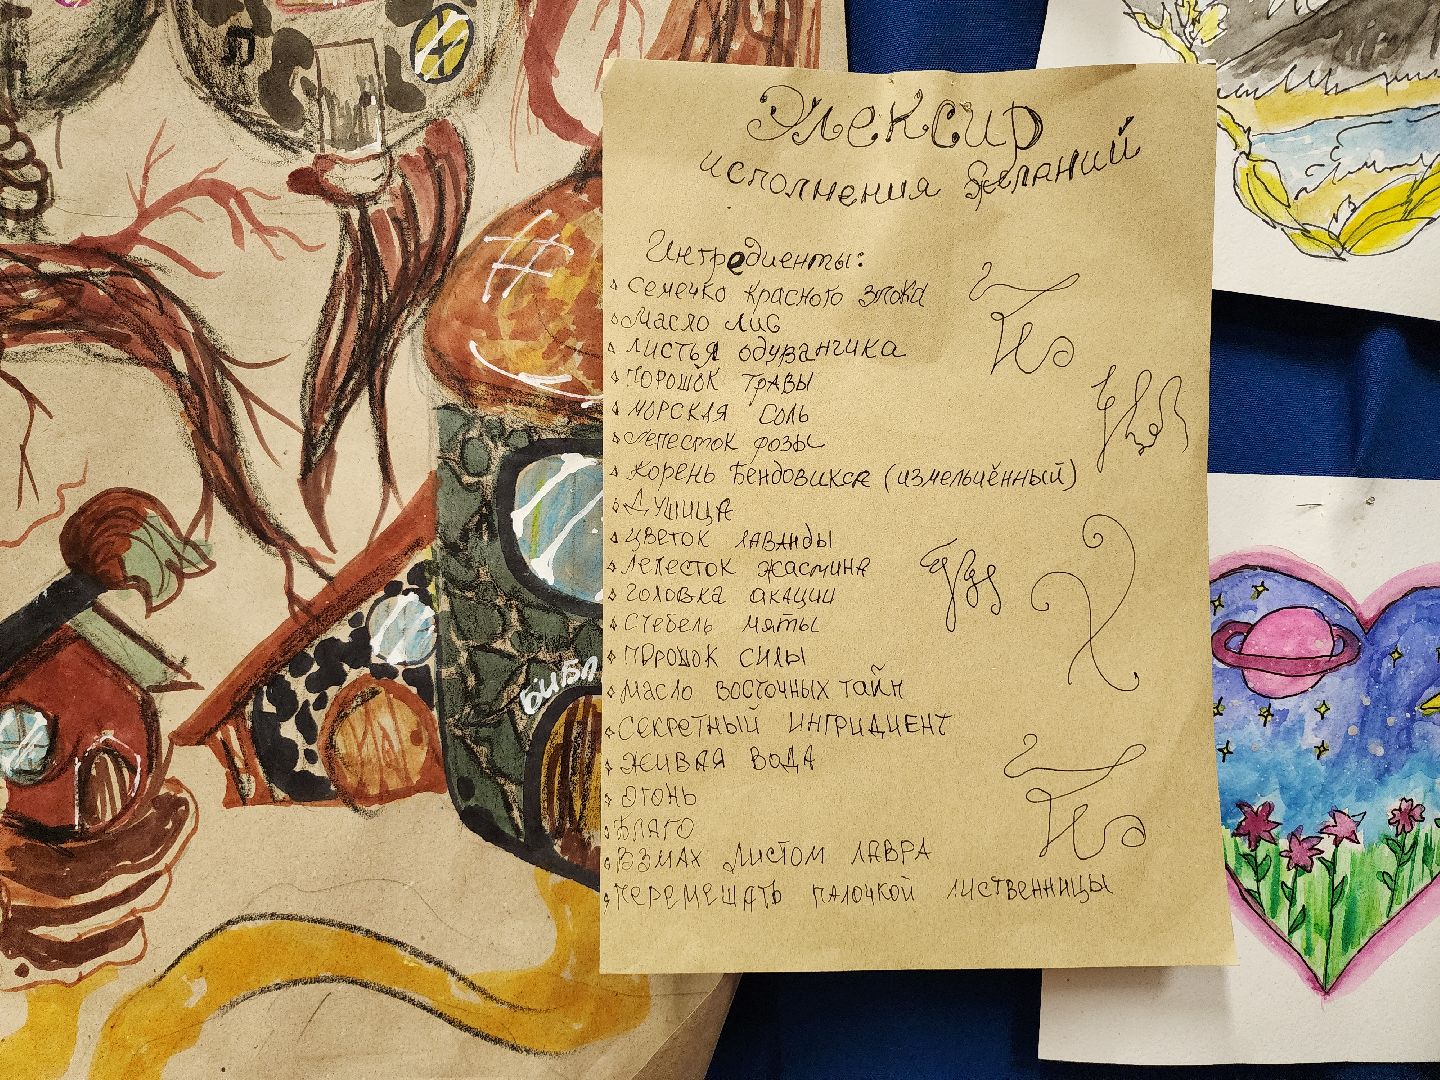 Элексир
исполнения желаний
Ингредиенты:
семечко красного злока
Масло лив
листья одуванчика
порошок травы
морская соль
лепесток розы
корень Бендовикса (измельчённый)
Душица
цветок лаванды
лепесток жасмина
головка акации
стебель мяты
порошок силы
масло восточных тайн
секретный ингридиент
живая вода
огонь
благо
взмах листом лавра
перемешать палочкой лиственницы
БИБЛ